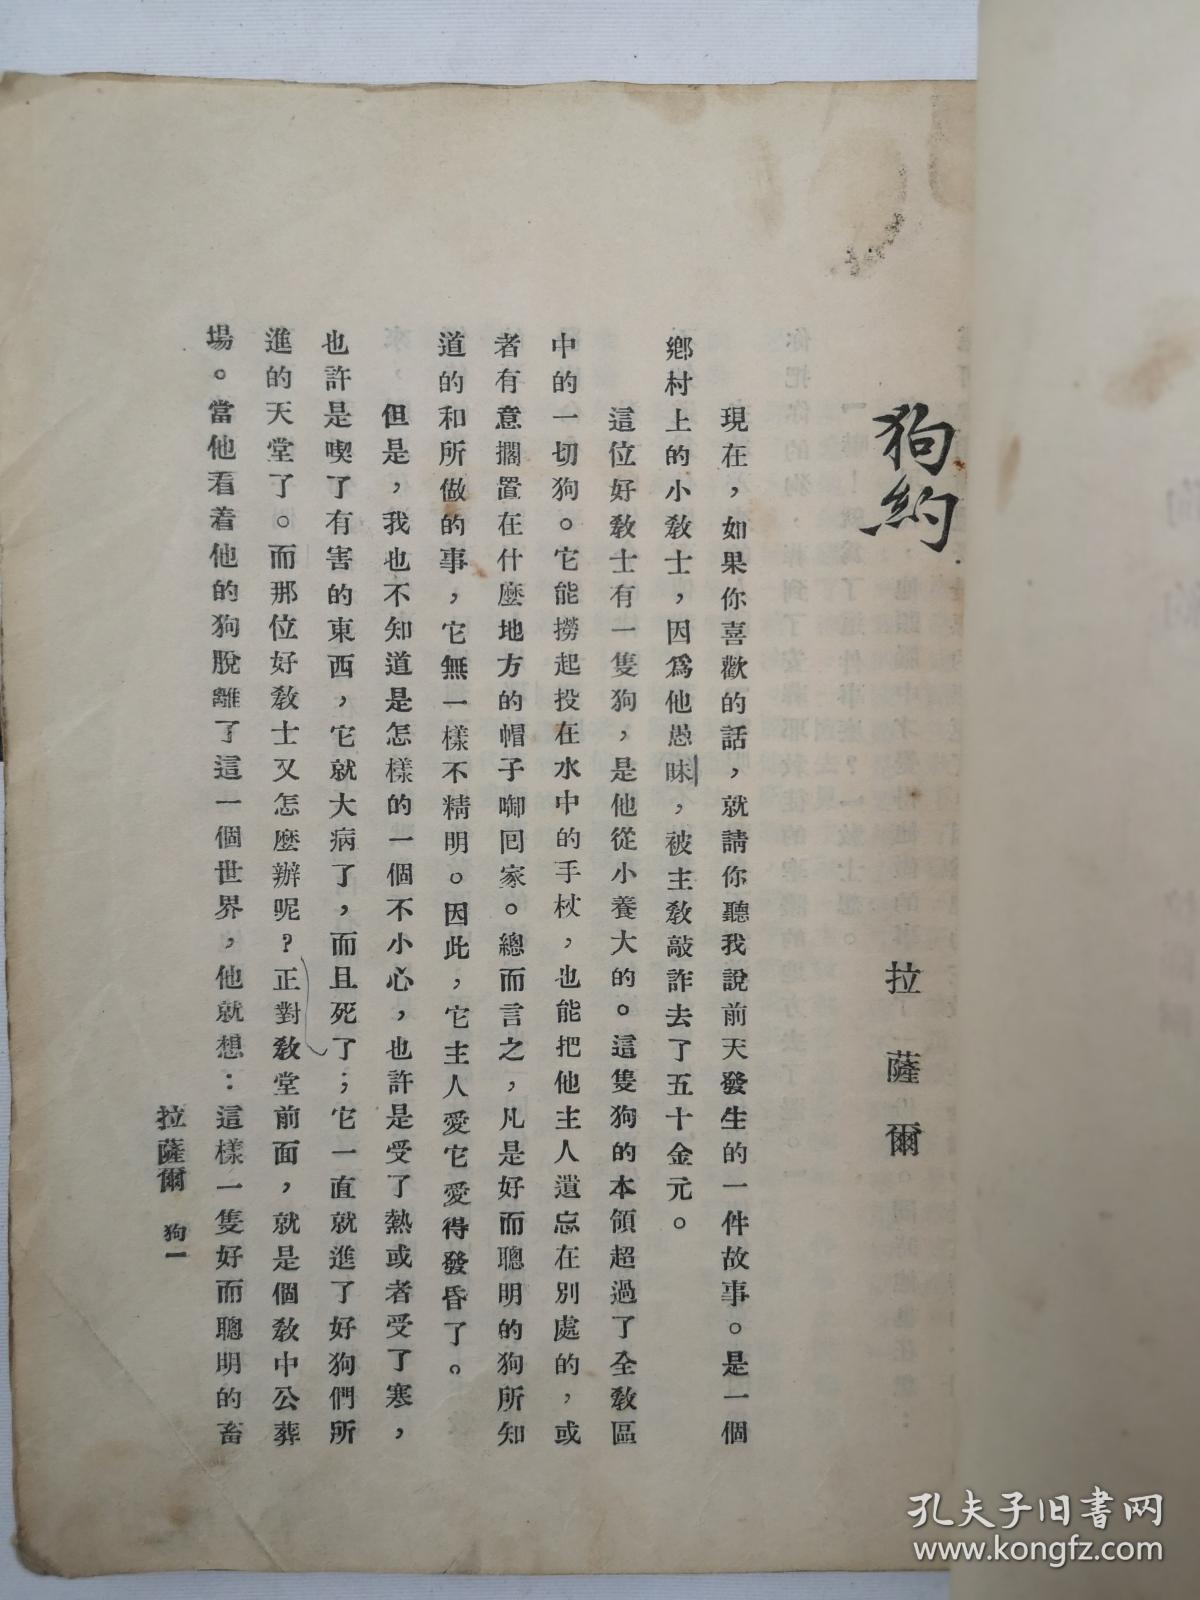 狗約
拉薩爾
現在，如果你喜歡的話，就請你聽我說前天發生的一件故事。是一個
鄉村上的小敎士，因爲他愚昧，被主敎敲詐去了五十金元。
這位好敎士有一隻狗，是他從小養大的。這隻狗的本領超過了全敎區
中的一切狗。它能撈起投在水中的手杖，也能把他主人遺忘在別處的，或
者有意擱置在什麼地方的帽子啣囘家。總而言之，凡是好而聰明的狗所知
道的和所做的事，它無一樣不精明。因此，它主人愛它愛得發昏了。
但是，我也不知道是怎樣的一個不小心，也許是受了熱或者受了寒，
也許是喫了有害的東西，它就大病了，而且死了；它一直就進了好狗們所
進的天堂了。而那位好敎士又怎麼辦呢？正對敎堂前面，就是個敎中公葬
場。當他看着他的狗脫離了這一個世界，他就想：這樣一隻好而聰明的畜
拉薩爾 狗一
孔夫子旧书网
www.kongfz.com